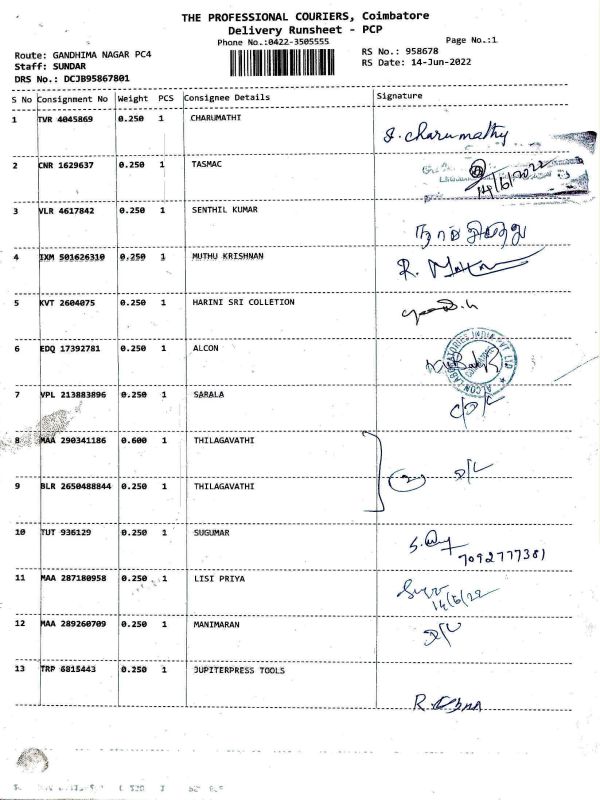 THE PROFESSIONAL COURIERS, Coimbatore
Delivery Runsheet - PCP
Phone No.:0422-3505555
Page No.:1
Route: GANDHIMA NAGAR PC4
RS No.: 958678
Staff: SUNDAR
RS Date: 14-Jun-2022
DRS No.: DCJB95867801
S No Consignment No Weight PCS Consignee Details Signature
1 TVR 4045869 0.250 1 CHARUMATHI
S. Charumathy
2 CNR 1629637 0.250 1 TASMAC
14/6/2022
3 VLR 4617842 0.250 1 SENTHIL KUMAR
4 IXM 501626310 0.250 1 MUTHU KRISHNAN
5 KVT 2604075 0.250 1 HARINI SRI COLLETION
6 EDQ 17392781 0.250 1 ALCON
ALCON LABORATORIES INDIA PVT LTD
7 VPL 213883896 0.250 1 SARALA
8 MAA 290341186 0.600 1 THILAGAVATHI
9 BLR 2650488844 0.250 1 THILAGAVATHI
10 TUT 936129 0.250 1 SUGUMAR
7092777381
11 MAA 287180958 0.250 1 LISI PRIYA
14/6/22
12 MAA 289260709 0.250 1 MANIMARAN
13 TRP 6815443 0.250 1 JUPITERPRESS TOOLS